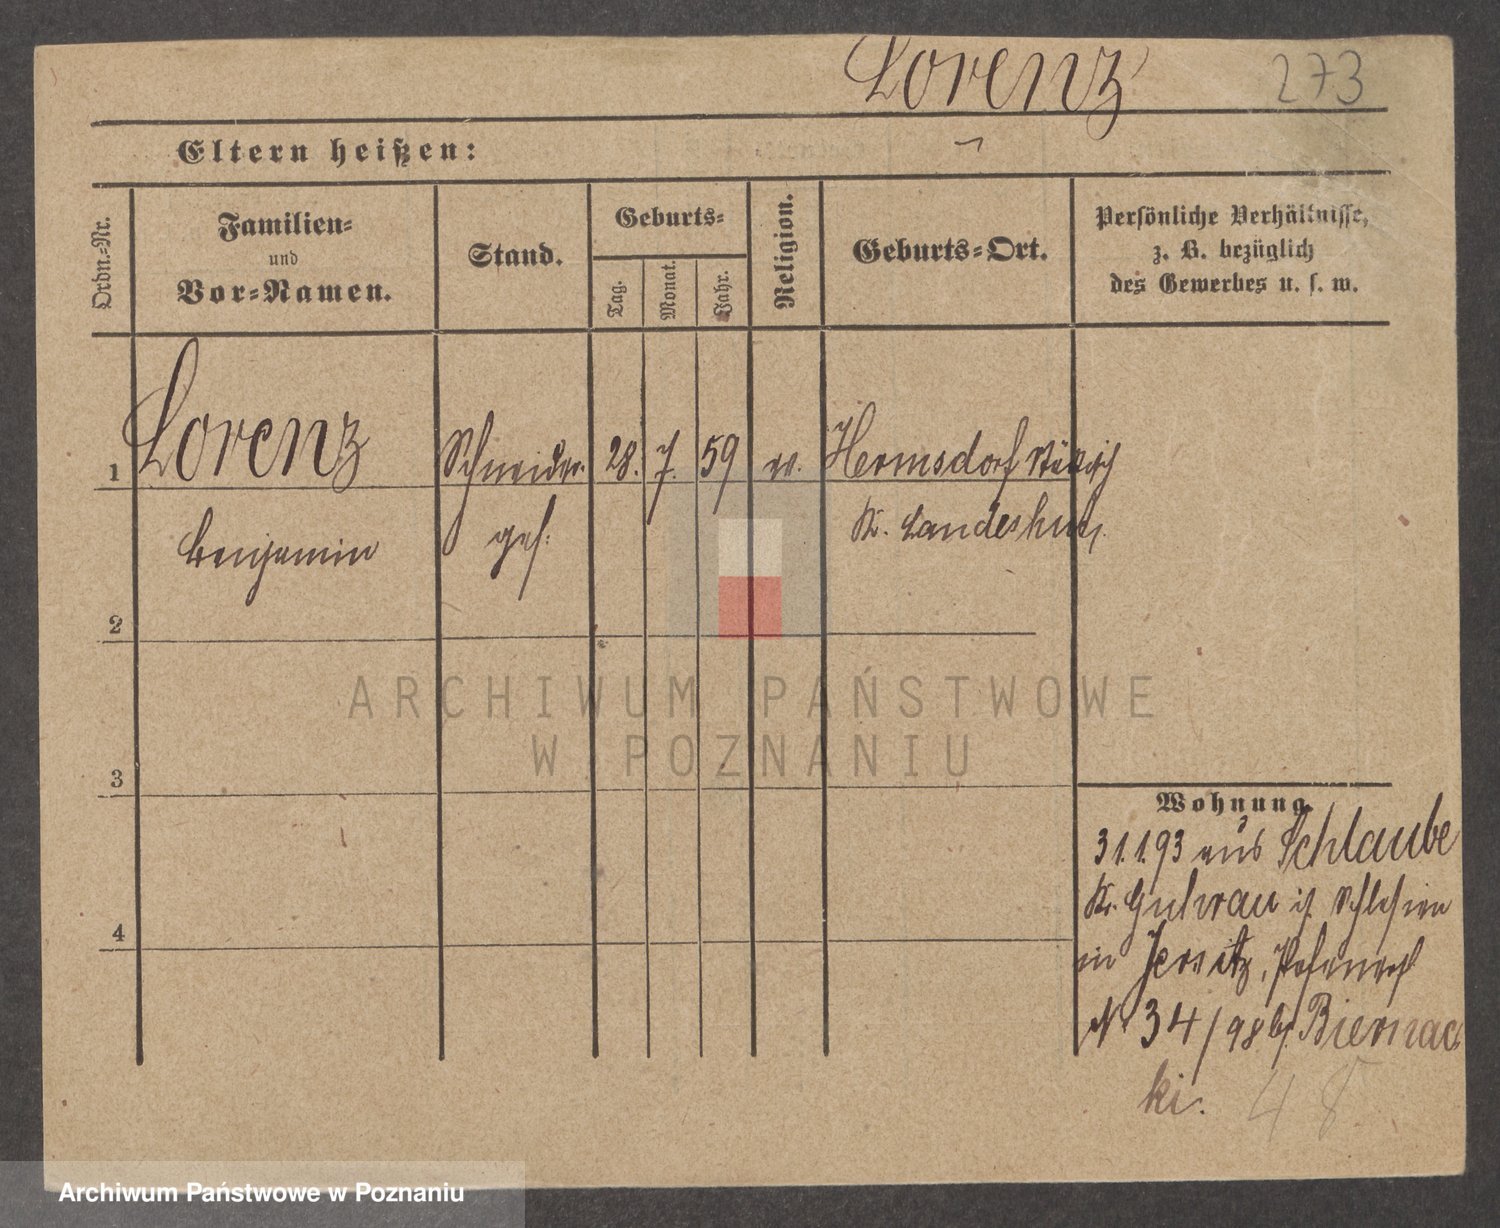 Lorenz 273
Eltern heißen:
Ordn.-Nr.
Familien-
und
Vor-Namen.
Stand.
Geburts-
Tag.
Monat.
Jahr.
Religion.
Geburts-Ort.
Persönliche Verhältnisse,
z. B. bezüglich
des Gewerbes u. s. w.
1 Lorenz Schneider- 28. 7. 59 ev. Hermsdorf städtisch
Benjamin ges: Kr. Landeshut.
2
ARCHIWUM PAŃSTWOWE
W POZNANIU
3
Wohnung.
31.1.93 aus Schlaube
Kr. Guhrau i/ Schlesien
4
in Jersitz, Posenerst
Nr 34/98 b/ Biernac
ki. 48
Archiwum Państwowe w Poznaniu